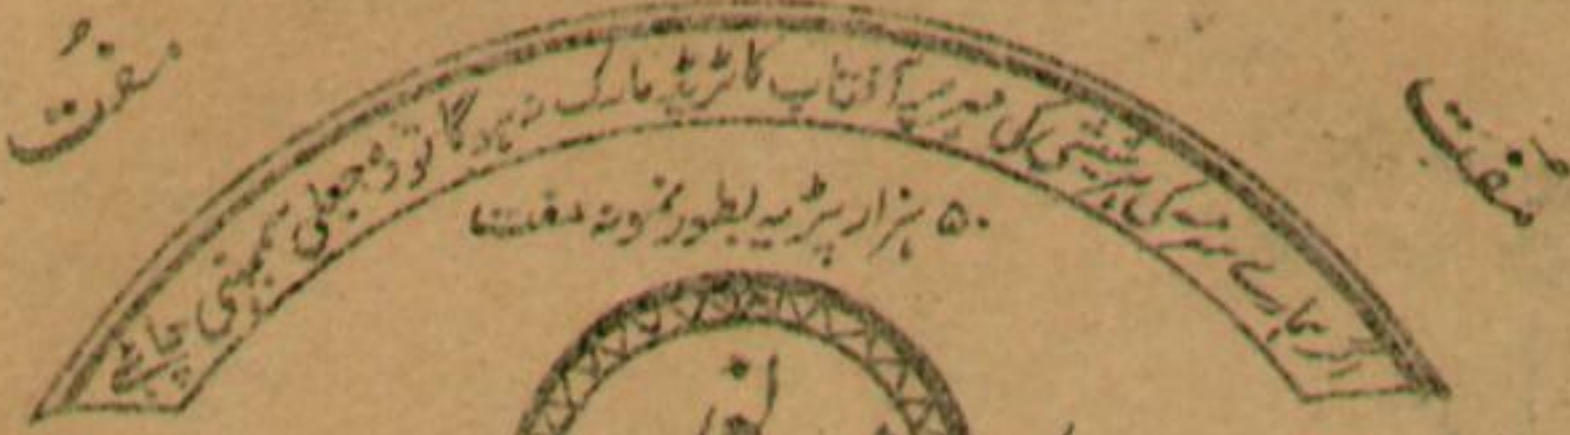 مفت
مفت
اگر ہمارے سرمہ کی ہر شیشی کی مہر پر آفتاب کا ٹریڈ مارک نہ ہو گا تو وہ جعلی سمجھنی چاہئے
۵۰ ہزار پڑیہ بطور نمونہ مفت